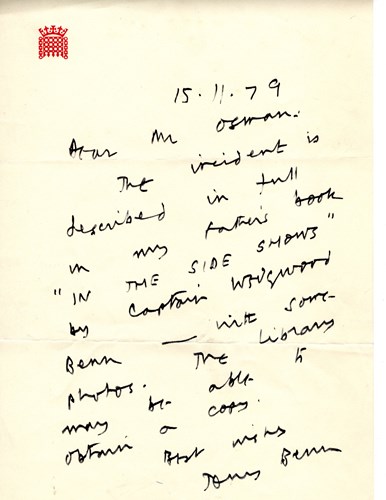 15.11.79
Dear Mr Osman.
The incident is
described in full
in my father's book
"IN THE SIDE SHOWS"
by Captain Wedgwood
Benn — with some
photos. The library
may be able to
obtain a copy.
Best wishes
Tony Benn